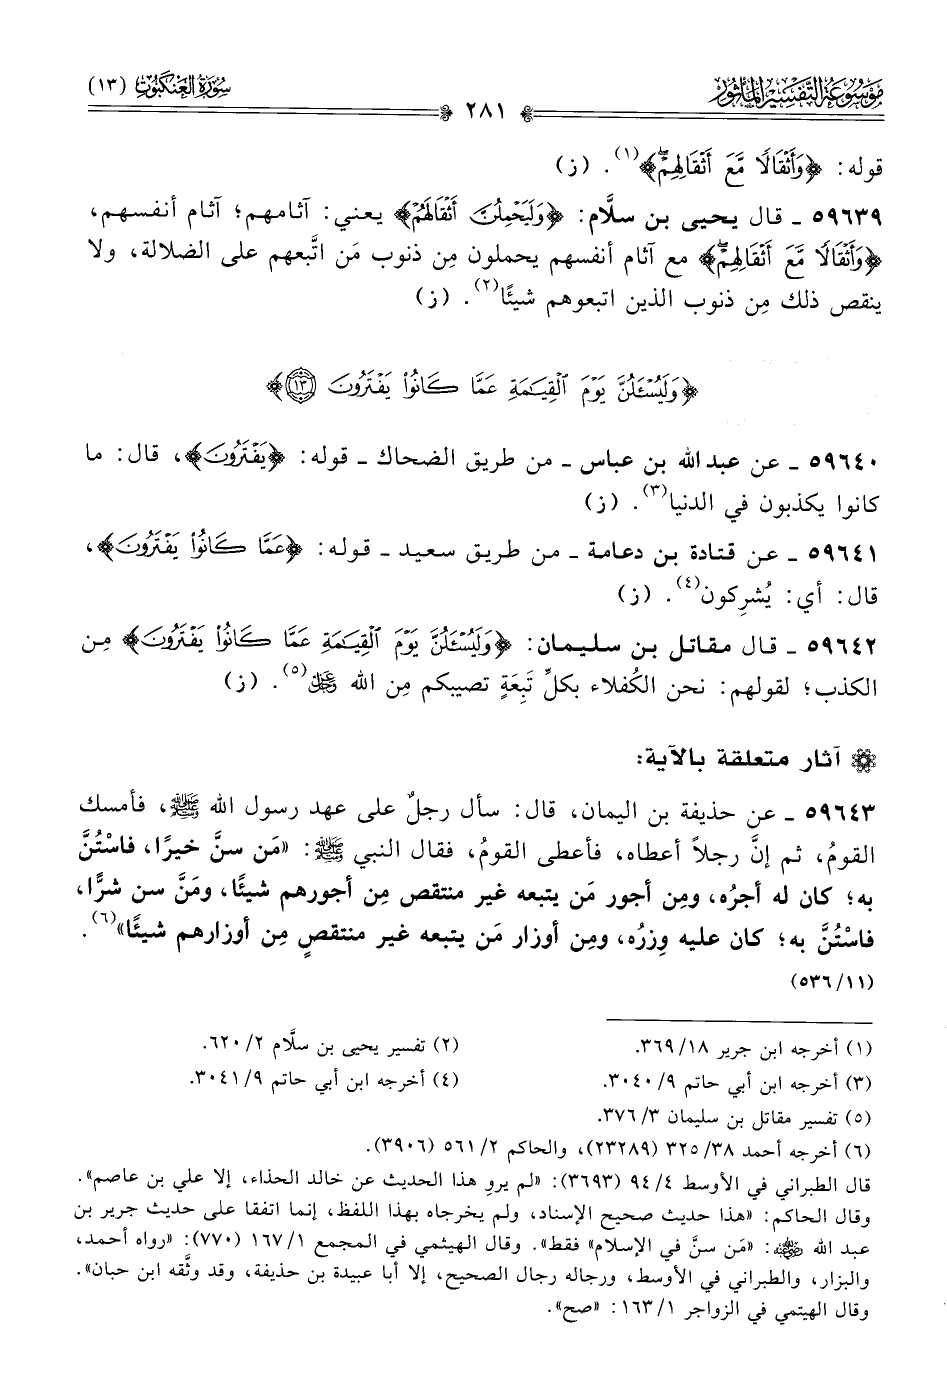 مَوْسُوعَة التَّفْسِير المَأْثُور
٢٨١
سُورَةُ العَنْكَبُوتِ (١٣)
قوله: ﴿وَأَثْقَالًا مَّعَ أَثْقَالِهِمْ﴾(١). (ز)
٥٩٦٣٩ ـ قال يحيى بن سلَّام: ﴿وَلَيَحْمِلُنَّ أَثْقَالَهُمْ﴾ يعني: آثامهم؛ آثام أنفسهم،
﴿وَأَثْقَالًا مَّعَ أَثْقَالِهِمْ﴾ مع آثام أنفسهم يحملون مِن ذنوب مَن اتَّبعهم على الضلالة، ولا
ينقص ذلك مِن ذنوب الذين اتبعوهم شيئًا(٢). (ز)
﴿وَلَيُسْـَٔلُنَّ يَوْمَ الْقِيَـٰمَةِ عَمَّا كَانُوا۟ يَفْتَرُونَ ۝١٣﴾
٥٩٦٤٠ ـ عن عبد الله بن عباس ـ من طريق الضحاك ـ قوله: ﴿يَفْتَرُونَ﴾، قال: ما
كانوا يكذبون في الدنيا(٣). (ز)
٥٩٦٤١ ـ عن قتادة بن دعامة ـ من طريق سعيد ـ قوله: ﴿عَمَّا كَانُوا۟ يَفْتَرُونَ﴾،
قال: أي: يُشرِكون(٤). (ز)
٥٩٦٤٢ ـ قال مقاتل بن سليمان: ﴿وَلَيُسْـَٔلُنَّ يَوْمَ الْقِيَـٰمَةِ عَمَّا كَانُوا۟ يَفْتَرُونَ﴾ مِن
الكذب؛ لقولهم: نحن الكُفلاء بكلِّ تَبِعَةٍ تصيبكم مِن الله ﷿(٥). (ز)
آثار متعلقة بالآية:
٥٩٦٤٣ ـ عن حذيفة بن اليمان، قال: سأل رجلٌ على عهد رسول الله ﷺ، فأمسك
القومُ، ثم إنَّ رجلاً أعطاه، فأعطى القومُ، فقال النبي ﷺ: «مَن سنَّ خيرًا، فاسْتُنَّ
به؛ كان له أجرُه، ومِن أجور مَن يتبعه غير منتقص مِن أجورهم شيئًا، ومَنَّ سن شرًّا،
فاسْتُنَّ به؛ كان عليه وِزرُه، ومِن أوزار مَن يتبعه غير منتقصٍ مِن أوزارهم شيئًا»(٦).
(١١/ ٥٣٦)
(١) أخرجه ابن جرير ١٨/ ٣٦٩.
(٢) تفسير يحيى بن سلَّام ٢/ ٦٢٠.
(٣) أخرجه ابن أبي حاتم ٩/ ٣٠٤٠.
(٤) أخرجه ابن أبي حاتم ٩/ ٣٠٤١.
(٥) تفسير مقاتل بن سليمان ٣/ ٣٧٦.
(٦) أخرجه أحمد ٣٨/ ٣٢٥ (٢٣٢٨٩)، والحاكم ٢/ ٥٦١ (٣٩٠٦).
قال الطبراني في الأوسط ٤/ ٩٤ (٣٦٩٣): «لم يروِ هذا الحديث عن خالد الحذاء، إلا علي بن عاصم».
وقال الحاكم: «هذا حديث صحيح الإسناد، ولم يخرجاه بهذا اللفظ، إنما اتفقا على حديث جرير بن
عبد الله ﵁: «مَن سنَّ في الإسلام» فقط». وقال الهيثمي في المجمع ١/ ١٦٧ (٧٧٠): «رواه أحمد،
والبزار، والطبراني في الأوسط، ورجاله رجال الصحيح، إلا أبا عبيدة بن حذيفة، وقد وثَّقه ابن حبان».
وقال الهيتمي في الزواجر ١/ ١٦٣: «صح».